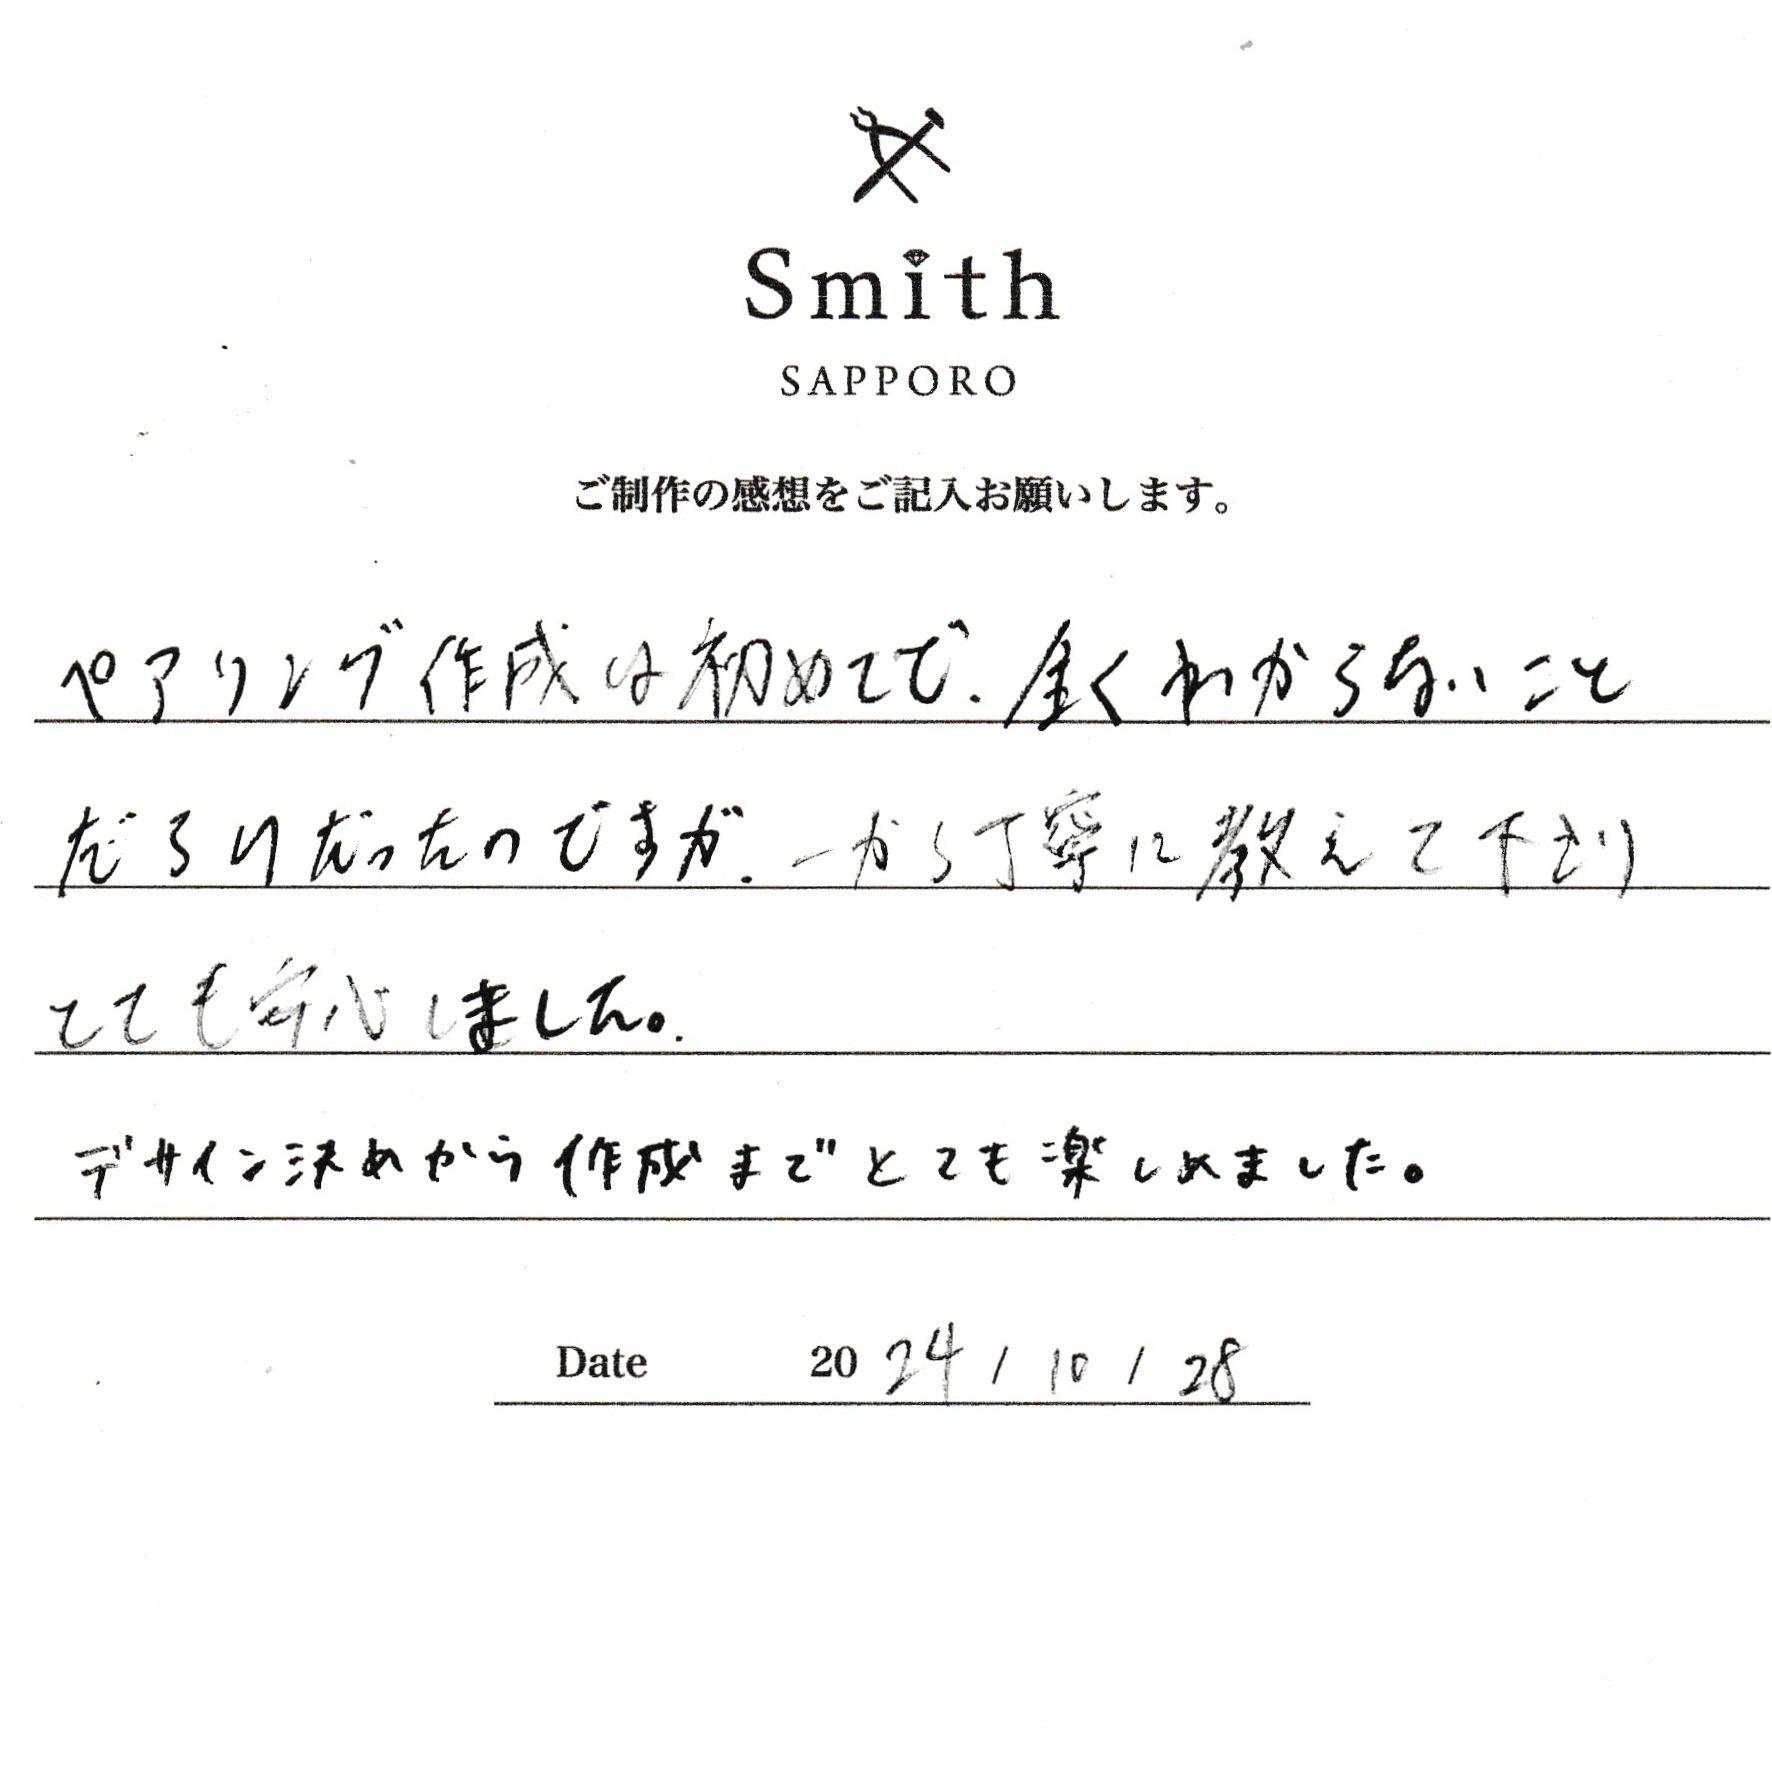 Smith
SAPPORO
ご制作の感想をご記入お願いします。
ペアリング作成は初めてで、全くわからないこと
だらけだったのですが、一から丁寧に教えて下さり
とても安心しました。
デザイン決めから作成までとても楽しめました。
Date 2024/10/28